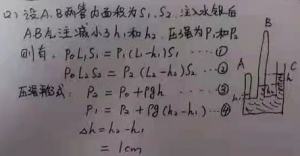 (2) 设A、B两管内面积为S₁、S₂, 注入水银后
AB气柱减小了h₁和h₂, 压强为P₁和P₂
则有: P₀L₁S₁ = P₁(L₁-h₁)S₁ ……①
P₀L₂S₂ = P₂(L₂-h₂)S₂ …②
压强形式: P₂ = P₀+ρgh ……③
P₁ = P₂+ρg(h₂-h₁) …④
Δh = h₂-h₁
= 1cm
B
A
C
h
h₁